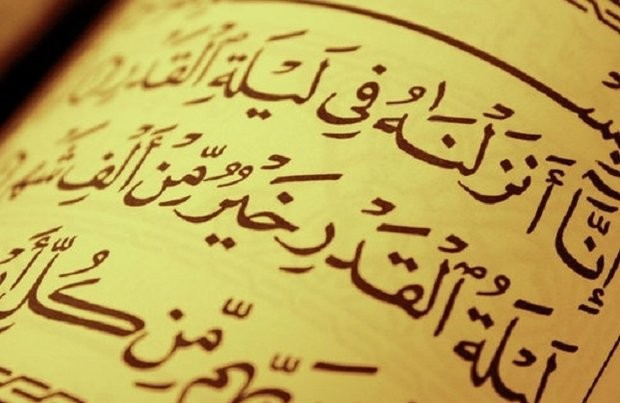 بِسْ
إِنَّآ أَنزَلْنَٰهُ فِي لَيْلَةِ ٱلْقَدْرِ
لَيْلَةُ ٱلْقَدْرِ خَيْرٌ مِّنْ أَلْفِ شَهْرٍ
بِّهِم مِّن كُلِّ أَ